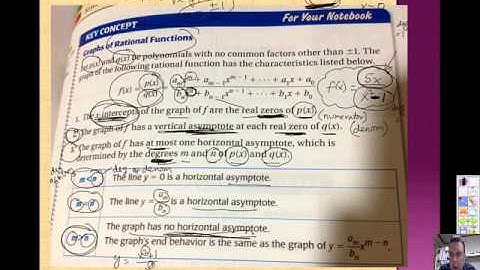 KEY CONCEPT
For Your Notebook
Graphs of Rational Functions
Let p(x) and q(x) be polynomials with no common factors other than ±1. The
graph of the following rational function has the characteristics listed below.
f(x) = p(x)/q(x) = (a_m x^m + a_{m-1}x^{m-1} + ··· + a_1x + a_0)/(b_n x^n + b_{n-1}x^{n-1} + ··· + b_1x + b_0)
f(x) = 5x/(x-1)
1. The x-intercepts of the graph of f are the real zeros of p(x).
(numerator)
2. The graph of f has a vertical asymptote at each real zero of q(x).
(denom)
3. The graph of f has at most one horizontal asymptote, which is
determined by the degrees m and n of p(x) and q(x).
m < n The line y = 0 is a horizontal asymptote.
m = n The line y = a_m/b_n is a horizontal asymptote.
m > n The graph has no horizontal asymptote.
The graph's end behavior is the same as the graph of y = (a_m/b_n)x^{m-n}.